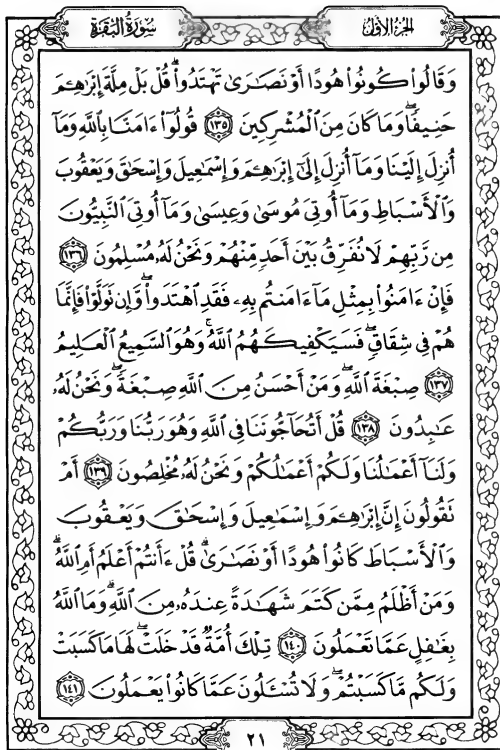 سُورَةُ البَقَرَةِ
الجُزْءُ الأَوَّلُ
وَقَالُوا۟ كُونُوا۟ هُودًا أَوْ نَصَـٰرَىٰ تَهْتَدُوا۟ ۗ قُلْ بَلْ مِلَّةَ إِبْرَٰهِـۧمَ
حَنِيفًا ۖ وَمَا كَانَ مِنَ ٱلْمُشْرِكِينَ ١٣٥ قُولُوٓا۟ ءَامَنَّا بِٱللَّهِ وَمَآ
أُنزِلَ إِلَيْنَا وَمَآ أُنزِلَ إِلَىٰٓ إِبْرَٰهِـۧمَ وَإِسْمَـٰعِيلَ وَإِسْحَـٰقَ وَيَعْقُوبَ
وَٱلْأَسْبَاطِ وَمَآ أُوتِىَ مُوسَىٰ وَعِيسَىٰ وَمَآ أُوتِىَ ٱلنَّبِيُّونَ
مِن رَّبِّهِمْ لَا نُفَرِّقُ بَيْنَ أَحَدٍ مِّنْهُمْ وَنَحْنُ لَهُۥ مُسْلِمُونَ ١٣٦
فَإِنْ ءَامَنُوا۟ بِمِثْلِ مَآ ءَامَنتُم بِهِۦ فَقَدِ ٱهْتَدَوا۟ ۖ وَّإِن تَوَلَّوْا۟ فَإِنَّمَا
هُمْ فِى شِقَاقٍ ۖ فَسَيَكْفِيكَهُمُ ٱللَّهُ ۚ وَهُوَ ٱلسَّمِيعُ ٱلْعَلِيمُ
١٣٧ صِبْغَةَ ٱللَّهِ ۖ وَمَنْ أَحْسَنُ مِنَ ٱللَّهِ صِبْغَةً ۖ وَنَحْنُ لَهُۥ
عَـٰبِدُونَ ١٣٨ قُلْ أَتُحَآجُّونَنَا فِى ٱللَّهِ وَهُوَ رَبُّنَا وَرَبُّكُمْ
وَلَنَآ أَعْمَـٰلُنَا وَلَكُمْ أَعْمَـٰلُكُمْ وَنَحْنُ لَهُۥ مُخْلِصُونَ ١٣٩ أَمْ
تَقُولُونَ إِنَّ إِبْرَٰهِـۧمَ وَإِسْمَـٰعِيلَ وَإِسْحَـٰقَ وَيَعْقُوبَ
وَٱلْأَسْبَاطَ كَانُوا۟ هُودًا أَوْ نَصَـٰرَىٰ ۗ قُلْ ءَأَنتُمْ أَعْلَمُ أَمِ ٱللَّهُ ۗ
وَمَنْ أَظْلَمُ مِمَّن كَتَمَ شَهَـٰدَةً عِندَهُۥ مِنَ ٱللَّهِ ۗ وَمَا ٱللَّهُ
بِغَـٰفِلٍ عَمَّا تَعْمَلُونَ ١٤٠ تِلْكَ أُمَّةٌ قَدْ خَلَتْ ۖ لَهَا مَا كَسَبَتْ
وَلَكُم مَّا كَسَبْتُمْ ۖ وَلَا تُسْـَٔلُونَ عَمَّا كَانُوا۟ يَعْمَلُونَ ١٤١
٢١